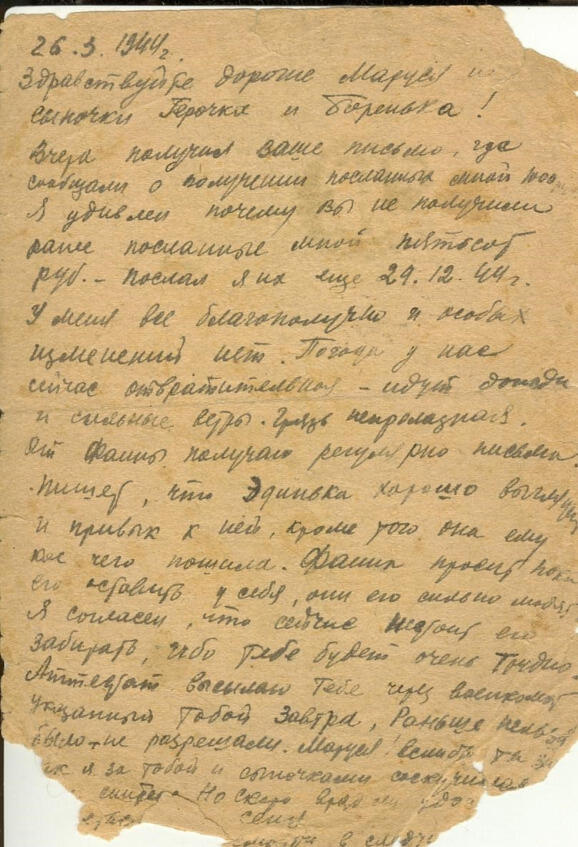 26.3.1944г.
Здравствуйте дорогие Маруся и
сыночки Герочка и Боренька!
Вчера получил ваше письмо, где
сообщали о получении посланных мной
Я удивлен почему вы не получили
ранее посланные мной пятьсот
руб. – послал я их еще 29.12.44г.
У меня все благополучно и особых
изменений нет. Погода у нас
сейчас отвратительная – идут дожди
и сильные ветры. Грязь непролазная.
От Фаины получаю регулярно письма.
Пишет, что Эдинька хорошо
и привык к ней, кроме того она ему
кое чего пошила. Фаина просит пока
его оставить у себя, они его сильно любят
Я согласен, что сейчас нестоит его
забирать, ибо тебе будет очень трудно.
Аттестат высылаю тебе через военкомат
указанный тобой завтра, Раньше нельзя
было – не разрешали. Маруся! ты
я за тобой и сыночками соскучился
Но скоро
в